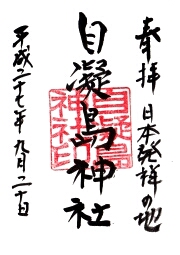 奉拝 日本発祥の地
自凝島神社
自凝島神社印
平成二十七年九月二十日